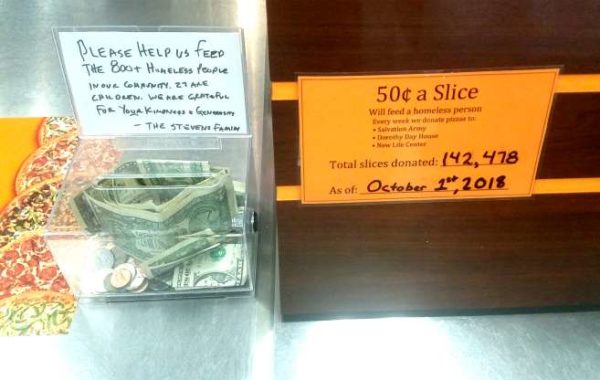 PLEASE HELP US FEED
THE 800+ HOMELESS PEOPLE
IN OUR COMMUNITY. 27 ARE
CHILDREN. WE ARE GRATEFUL
FOR YOUR KINDNESS & GENEROSITY
— THE STEVENS FAMILY
50¢ a Slice
Will feed a homeless person
Every week we donate pizzas to:
• Salvation Army
• Dorothy Day House
• New Life Center
Total slices donated: 142,478
As of: October 1st, 2018